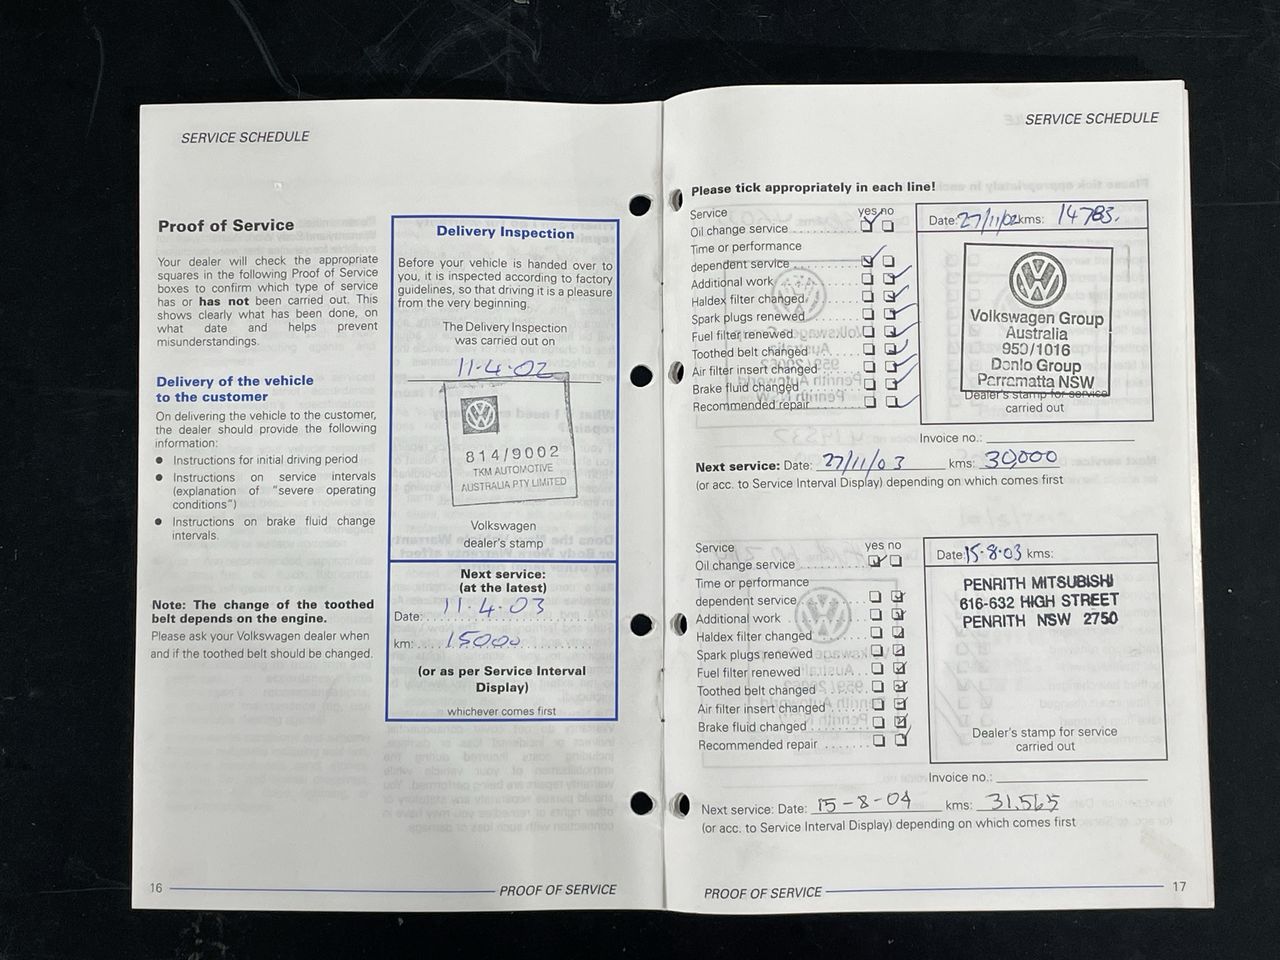 SERVICE SCHEDULE
Proof of Service
Your dealer will check the appropriate
squares in the following Proof of Service
boxes to confirm which type of service
has or has not been carried out. This
shows clearly what has been done, on
what date and helps prevent
misunderstandings.
Delivery of the vehicle
to the customer
On delivering the vehicle to the customer,
the dealer should provide the following
information:
● Instructions for initial driving period
● Instructions on service intervals
(explanation of "severe operating
conditions")
● Instructions on brake fluid change
intervals.
Note: The change of the toothed
belt depends on the engine.
Please ask your Volkswagen dealer when
and if the toothed belt should be changed.
Delivery Inspection
Before your vehicle is handed over to
you, it is inspected according to factory
guidelines, so that driving it is a pleasure
from the very beginning.
The Delivery Inspection
was carried out on
11-4-02
814/9002
TKM AUTOMOTIVE
AUSTRALIA PTY LIMITED
Volkswagen
dealer's stamp
Next service:
(at the latest)
Date: 11.4.03
km: 15000
(or as per Service Interval
Display)
whichever comes first
16 PROOF OF SERVICE
SERVICE SCHEDULE
Please tick appropriately in each line!
Service yes no
Oil change service
Time or performance
dependent service
Additional work
Haldex filter changed
Spark plugs renewed
Fuel filter renewed
Toothed belt changed
Air filter insert changed
Brake fluid changed
Recommended repair
Date: 27/11/02 kms: 14783.
Volkswagen Group
Australia
950/1016
Denlo Group
Parramatta NSW
Dealer's stamp for service
carried out
Invoice no.:
Next service: Date: 27/11/03 kms: 30,000
(or acc. to Service Interval Display) depending on which comes first
Service yes no
Oil change service
Time or performance
dependent service
Additional work
Haldex filter changed
Spark plugs renewed
Fuel filter renewed
Toothed belt changed
Air filter insert changed
Brake fluid changed
Recommended repair
Date: 15-8-03 kms:
PENRITH MITSUBISHI
616-632 HIGH STREET
PENRITH NSW 2750
Dealer's stamp for service
carried out
Invoice no.:
Next service: Date: 15-8-04 kms: 31,565
(or acc. to Service Interval Display) depending on which comes first
PROOF OF SERVICE 17